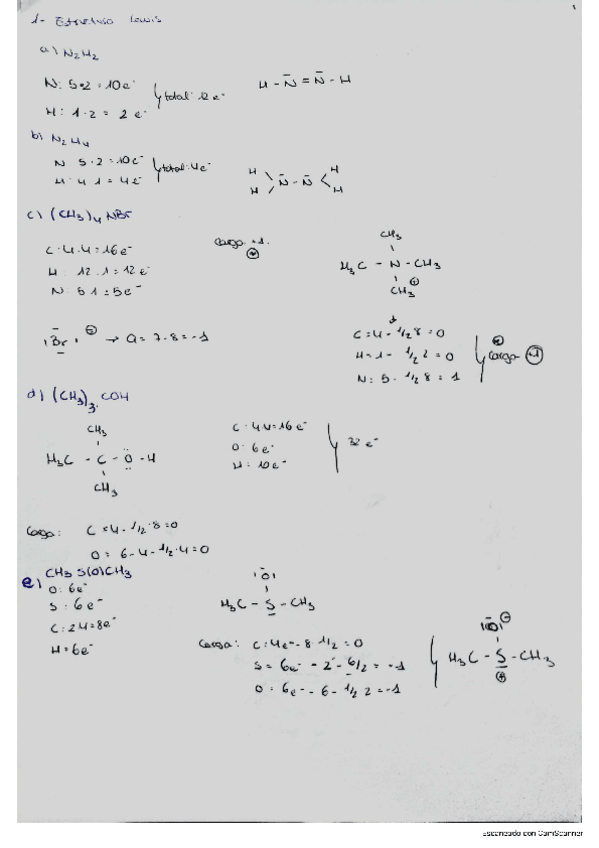 1- Estructura Lewis
a) N₂H₂
N: 5·2 = 10e⁻
H: 1·2 = 2e⁻
total: 12e⁻
H - N̄ = N̄ - H
b) N₂H₄
N 5·2 = 10e⁻
H·4 1 = 4e⁻
H H
N̄ - N̄
H H
c) (CH₃)₄NBr
C·4·4 = 16e⁻
H: 12·1 = 12e⁻
N: 5·1 = 5e⁻
Carga +1.
CH₃
H₃C - N - CH₃
CH₃ ⊕
Br ⊖ → Q = 7-8 = -1
C = 4 - 1/2 8 = 0
H = 1 - 1/2 2 = 0
N: 5 - 1/2 8 = 1
carga +1
d) (CH₃)₃COH
CH₃
H₃C - C - O - H
CH₃
C·4·4 = 16e⁻
O: 6e⁻
H: 10e⁻
32e⁻
Carga: C = 4 - 1/2·8 = 0
O = 6 - 4 - 1/2·4 = 0
e) CH₃S(O)CH₃
O: 6e⁻
S: 6e⁻
C: 2·4 = 8e⁻
H = 6e⁻
O
H₃C - S - CH₃
Carga: C: 4e⁻ - 8·1/2 = 0
S = 6e⁻ - 2 - 6/2 = -1
O = 6e⁻ - 6 - 1/2 2 = -1
O ⊖
H₃C - S - CH₃
⊕
Escaneado con CamScanner